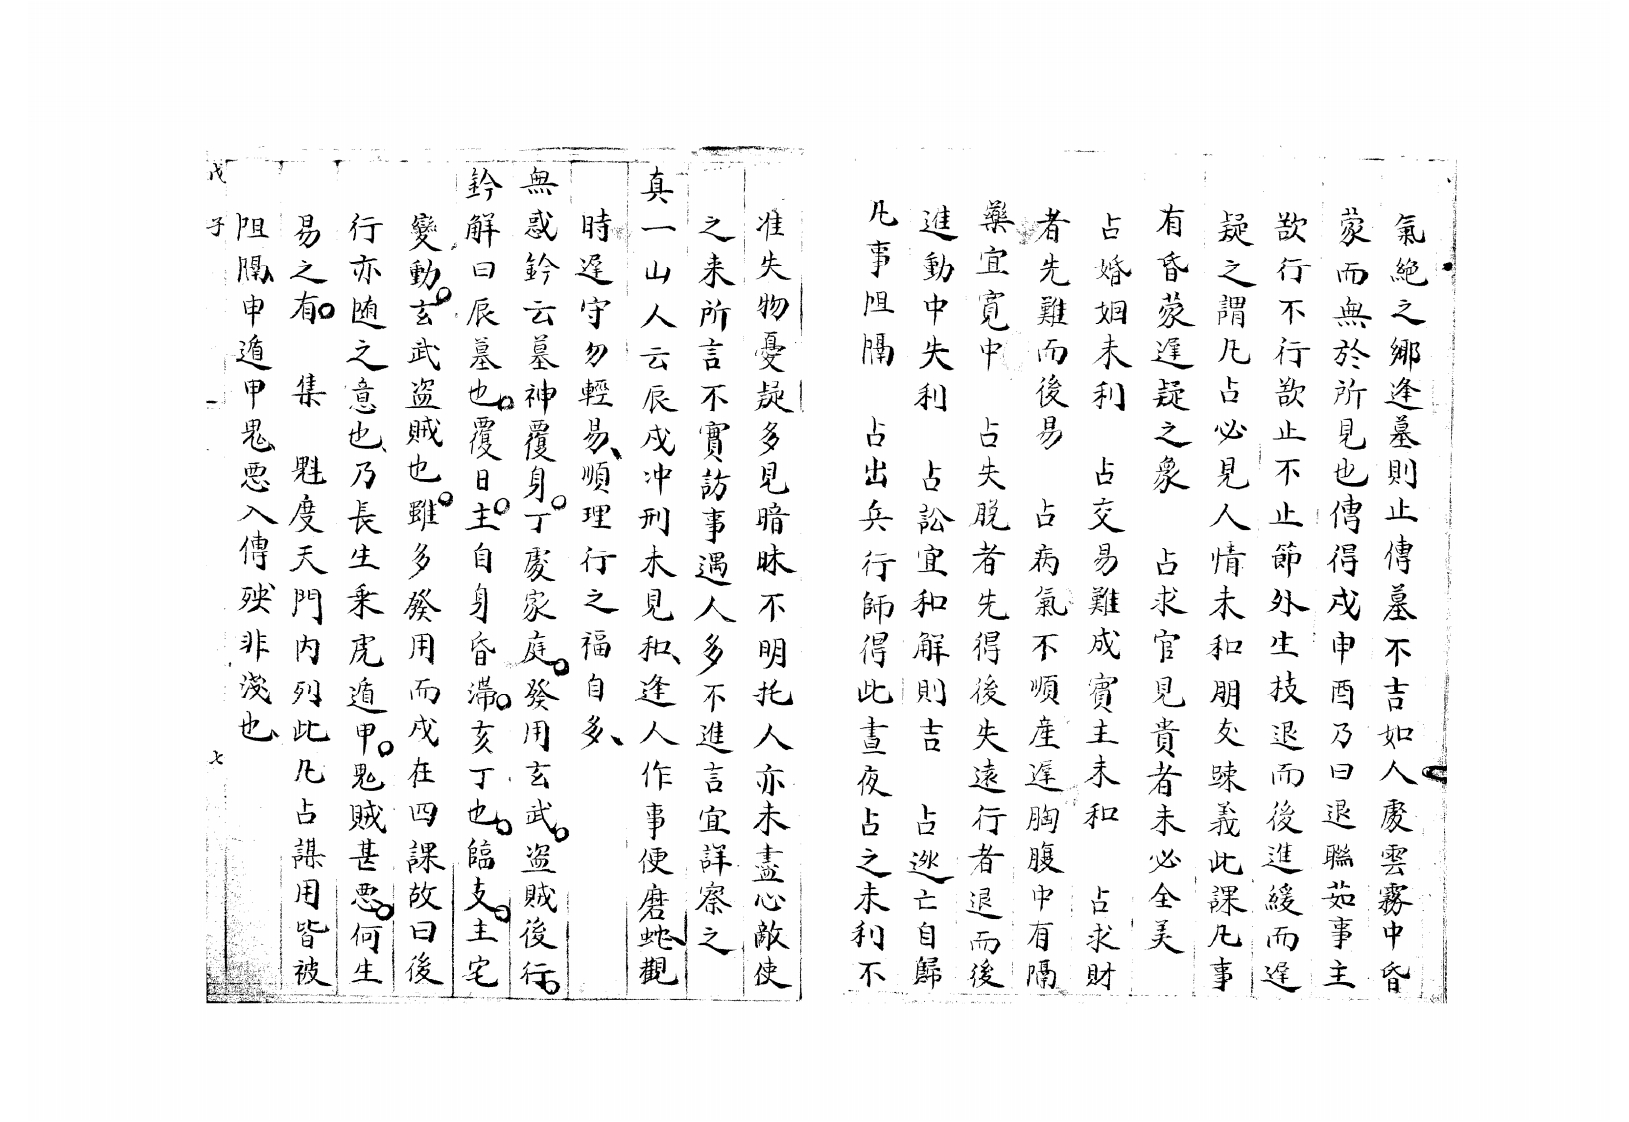 氣絶之鄉逢墓則止傳墓不吉如人處雲霧中昏
蒙而無於所見也傳得戌申酉乃曰退聯茹事主
歃行不行歃止不止節外生枝退而後進緩而遲
疑之謂凡占必見人情未和朋友疎義此課凡事
有昏蒙遲疑之象　占求官見貴者未必全美
占婚姻未利　占交易難成賓主未和　占求財
者先難而後易　占病氣不順産遲胸腹中有隔
藥宜寬中　占失脱者先得後失遠行者退而後
進動中失利　占訟宜和解則吉　占逃亡自歸
凡事阻隔　占出兵行師得此晝夜占之未利不
准失物憂疑多見暗昧不明托人亦未盡心敵使
之来所言不實訪事遇人多不進言宜詳察之
真一山人云辰戌冲刑未見和逢人作事便磨蛇觀
時遲守勿輕易順理行之福自多
無惑鈐云墓神覆身丁處家庭發用玄武盗賊後行
鈐解曰辰墓也覆日主自身昏滯亥丁也臨支主宅
變動玄武盗賊也雖多發用而戌在四課故曰後
行亦随之意也乃長生乘虎遁甲鬼賊甚惡何生
易之有　集　魁度天門内列此凡占謀用皆被
阻隔申遁甲鬼惡入傳殃非淺也
戊子　七